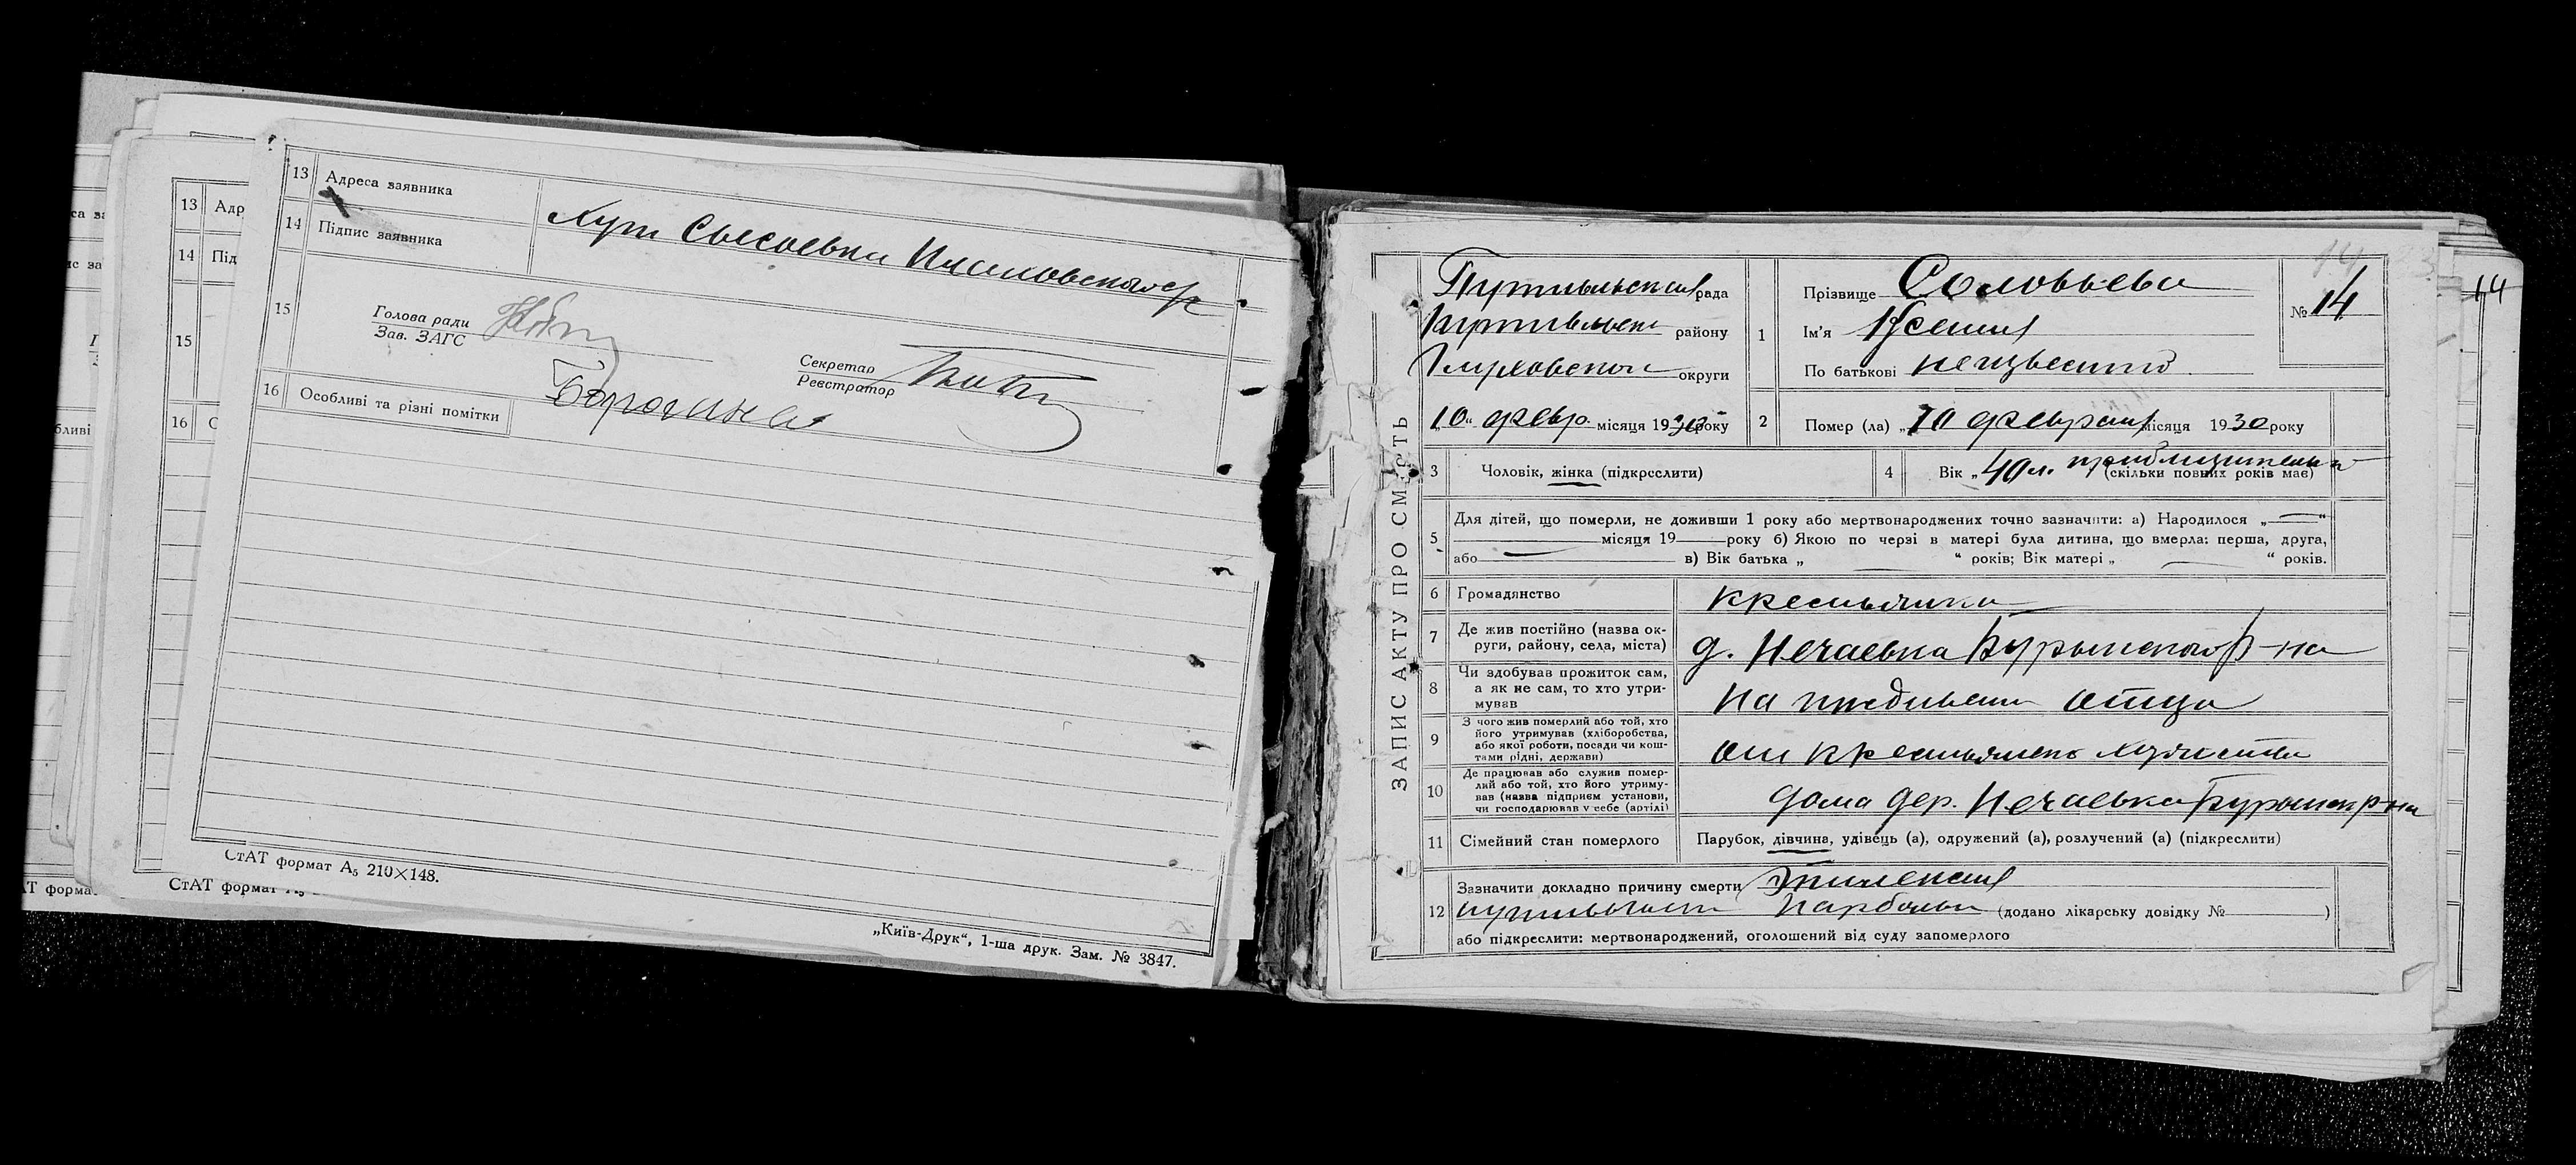 са за
ис за
бливі
АТ форма
13 Адр
14 Під
15
16 О
СтАТ формат А5
13 Адреса заявника
14 Підпис заявника
Хут Сысоевка
15
Голова ради
Зав. ЗАГС
Секретар
Реєстратор
16 Особливі та різні помітки
СтАТ формат А5 210×148.
„Київ-Друк“, 1-ша друк. Зам. № 3847.
ЗАПИС АКТУ ПРО СМЕРТЬ
14
Путивльская рада
Путивльск району
Глуховской округи
„10“ февр. місяця 1930 року
1
Прізвище Соловьева
Ім'я Ксения
По батькові неизвестно
№ 14
14
2 Помер (ла) „10 февраля місяця 1930 року
3 Чоловік, жінка (підкреслити)
4 Вік „40 л. приблизительно
(скільки повних років має)
5 Для дітей, що померли, не доживши 1 року або мертвонароджених точно зазначити: а) Народилося „—“
місяця 19 — року б) Якою по черзі в матері була дитина, що вмерла: перша, друга,
або — в) Вік батька „ — “ років; Вік матері „ — “ років.
6 Громадянство крестьянка
7 Де жив постійно (назва ок-
руги, району, села, міста)
д. Нечаевка Бурынского р-на
8 Чи здобував прожиток сам,
а як не сам, то хто утри-
мував
на иждивении отца
9 З чого жив померлий або той, хто
його утримував (хліборобства,
або якої роботи, посади чи кош-
тами рідні, держави)
от крестьянск хозяйства
10 Де працював або служив помер-
лий або той, хто його утриму-
вав (назва підприєм установи,
чи господарював у себе (артілі)
дома дер. Нечаевка Бурынск р-на
11 Сімейний стан померлого Парубок, дівчина, удівець (а), одружений (а), розлучений (а) (підкреслити)
12 Зазначити докладно причину смерти
(додано лікарську довідку № — )
або підкреслити: мертвонароджений, оголошений від суду запомерлого